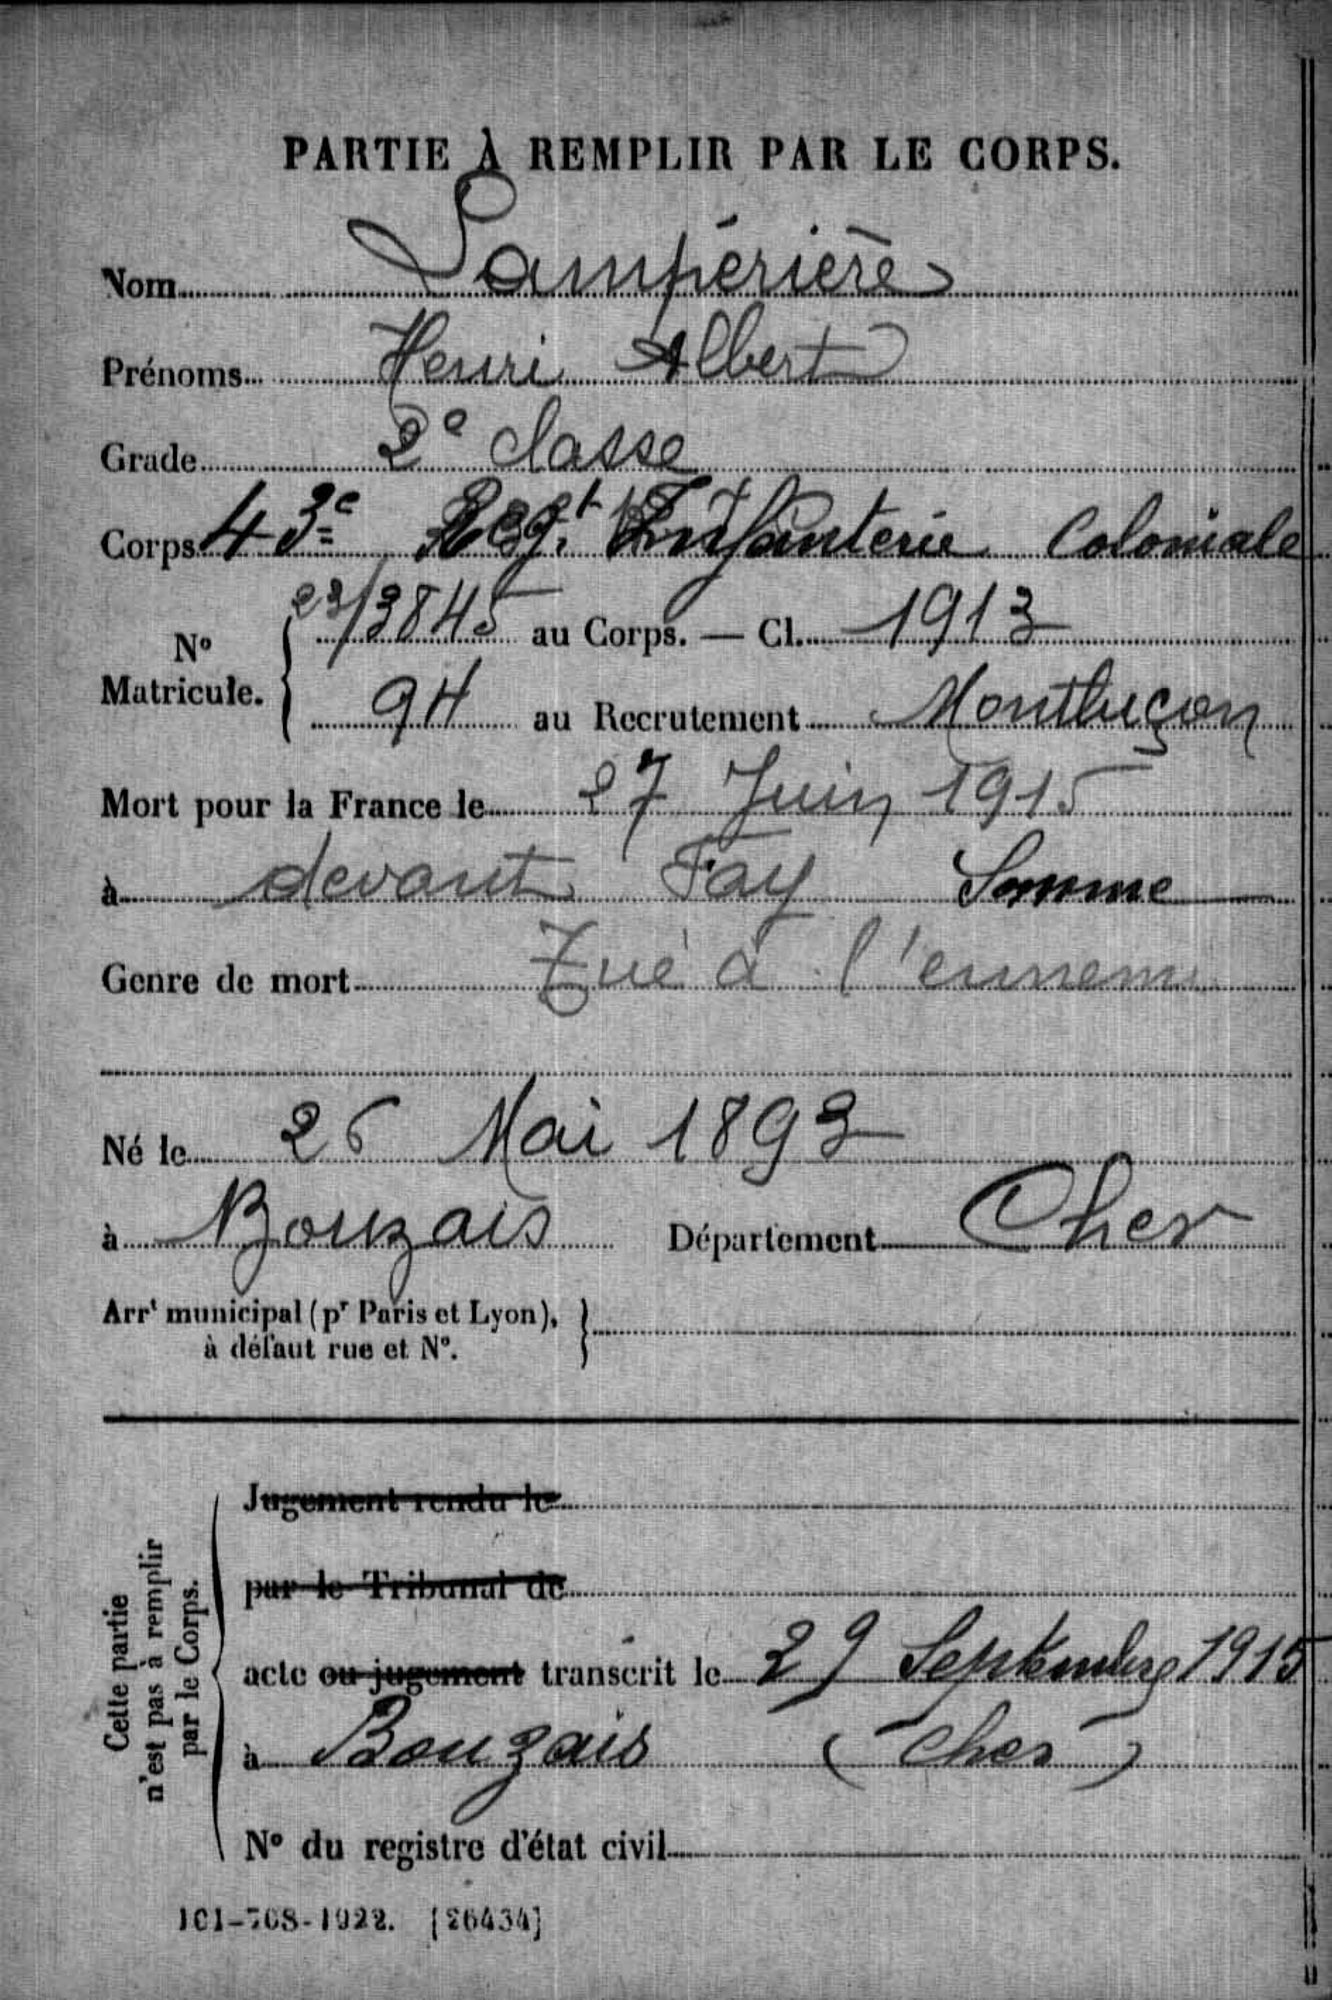 PARTIE À REMPLIR PAR LE CORPS.
Nom Lampérière
Prénoms Henri Albert
Grade 2e classe
Corps 43e Regt Infanterie Coloniale
N° Matricule. 23/3845 au Corps. — Cl. 1913
94 au Recrutement Montluçon
Mort pour la France le 27 Juin 1915
à devant Fay Somme
Genre de mort Tué à l'ennemi
Né le 26 Mai 1893
à Bouzais Département Cher
Arrt municipal (pr Paris et Lyon),
à défaut rue et N°.
Cette partie
n'est pas à remplir
par le Corps.
Jugement rendu le
par le Tribunal de
acte ou jugement transcrit le 29 Septembre 1915
à Bouzais (Cher)
N° du registre d'état civil
101-708-1922. [26434]